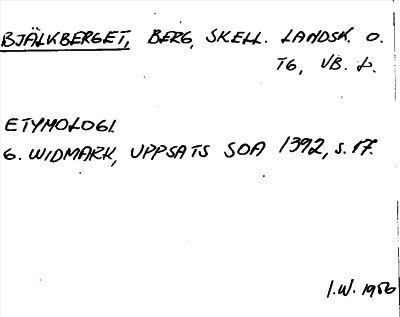 BJÄLKBERGET, BERG, SKELL. LANDSK. O.
TG, VB. L.
ETYMOLOGI.
G. WIDMARK, UPPSATS SOA 1392, s. 17.
I.W. 1956